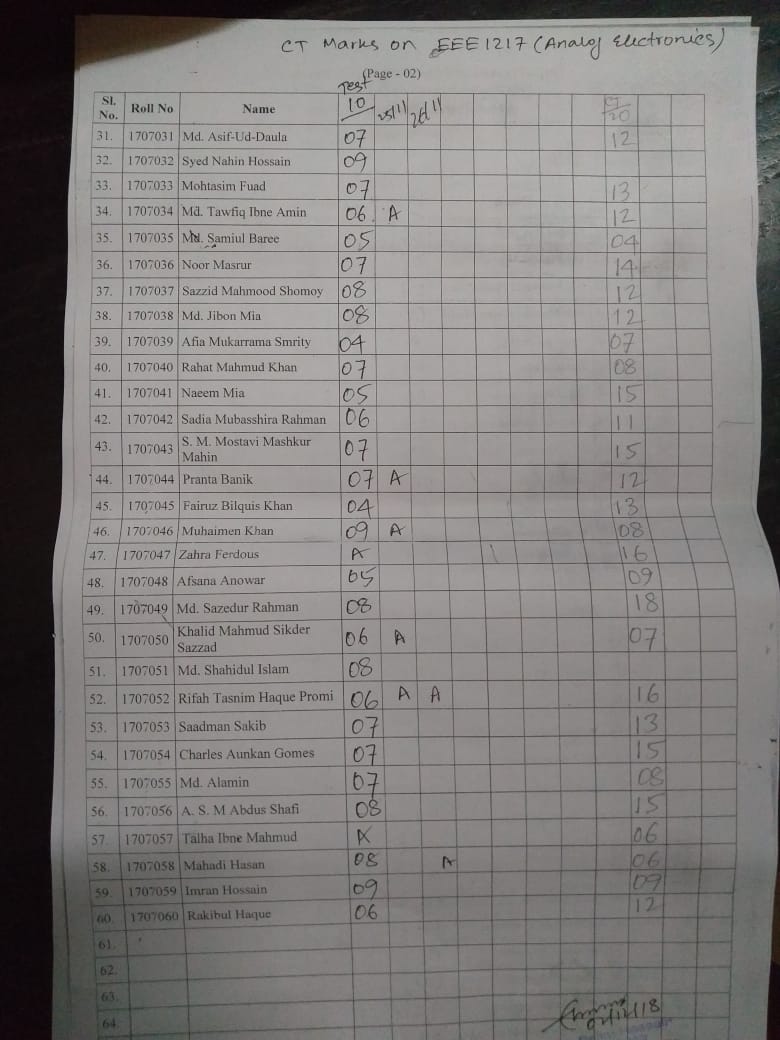 CT Marks on EEE1217 (Analog Electronics)
(Page - 02)
Sl. No. Roll No Name Test 10 25/11 26/11 CT 20
31. 1707031 Md. Asif-Ud-Daula 07 12
32. 1707032 Syed Nahin Hossain 09
33. 1707033 Mohtasim Fuad 07 13
34. 1707034 Md. Tawfiq Ibne Amin 06 A 12
35. 1707035 Md. Samiul Baree 05 04
36. 1707036 Noor Masrur 07 14
37. 1707037 Sazzid Mahmood Shomoy 08 12
38. 1707038 Md. Jibon Mia 08 12
39. 1707039 Afia Mukarrama Smrity 04 07
40. 1707040 Rahat Mahmud Khan 07 08
41. 1707041 Naeem Mia 05 15
42. 1707042 Sadia Mubasshira Rahman 06 11
43. 1707043 S. M. Mostavi Mashkur Mahin 07 15
44. 1707044 Pranta Banik 07 A 12
45. 1707045 Fairuz Bilquis Khan 04 13
46. 1707046 Muhaimen Khan 09 A 08
47. 1707047 Zahra Ferdous A 16
48. 1707048 Afsana Anowar 05 09
49. 1707049 Md. Sazedur Rahman 08 18
50. 1707050 Khalid Mahmud Sikder Sazzad 06 A 07
51. 1707051 Md. Shahidul Islam 08
52. 1707052 Rifah Tasnim Haque Promi 06 A A 16
53. 1707053 Saadman Sakib 07 13
54. 1707054 Charles Aunkan Gomes 07 15
55. 1707055 Md. Alamin 07 08
56. 1707056 A. S. M Abdus Shafi 08 15
57. 1707057 Talha Ibne Mahmud A 06
58. 1707058 Mahadi Hasan 08 A 06
59. 1707059 Imran Hossain 09 09
60. 1707060 Rakibul Haque 06 12
61.
62.
63.
64